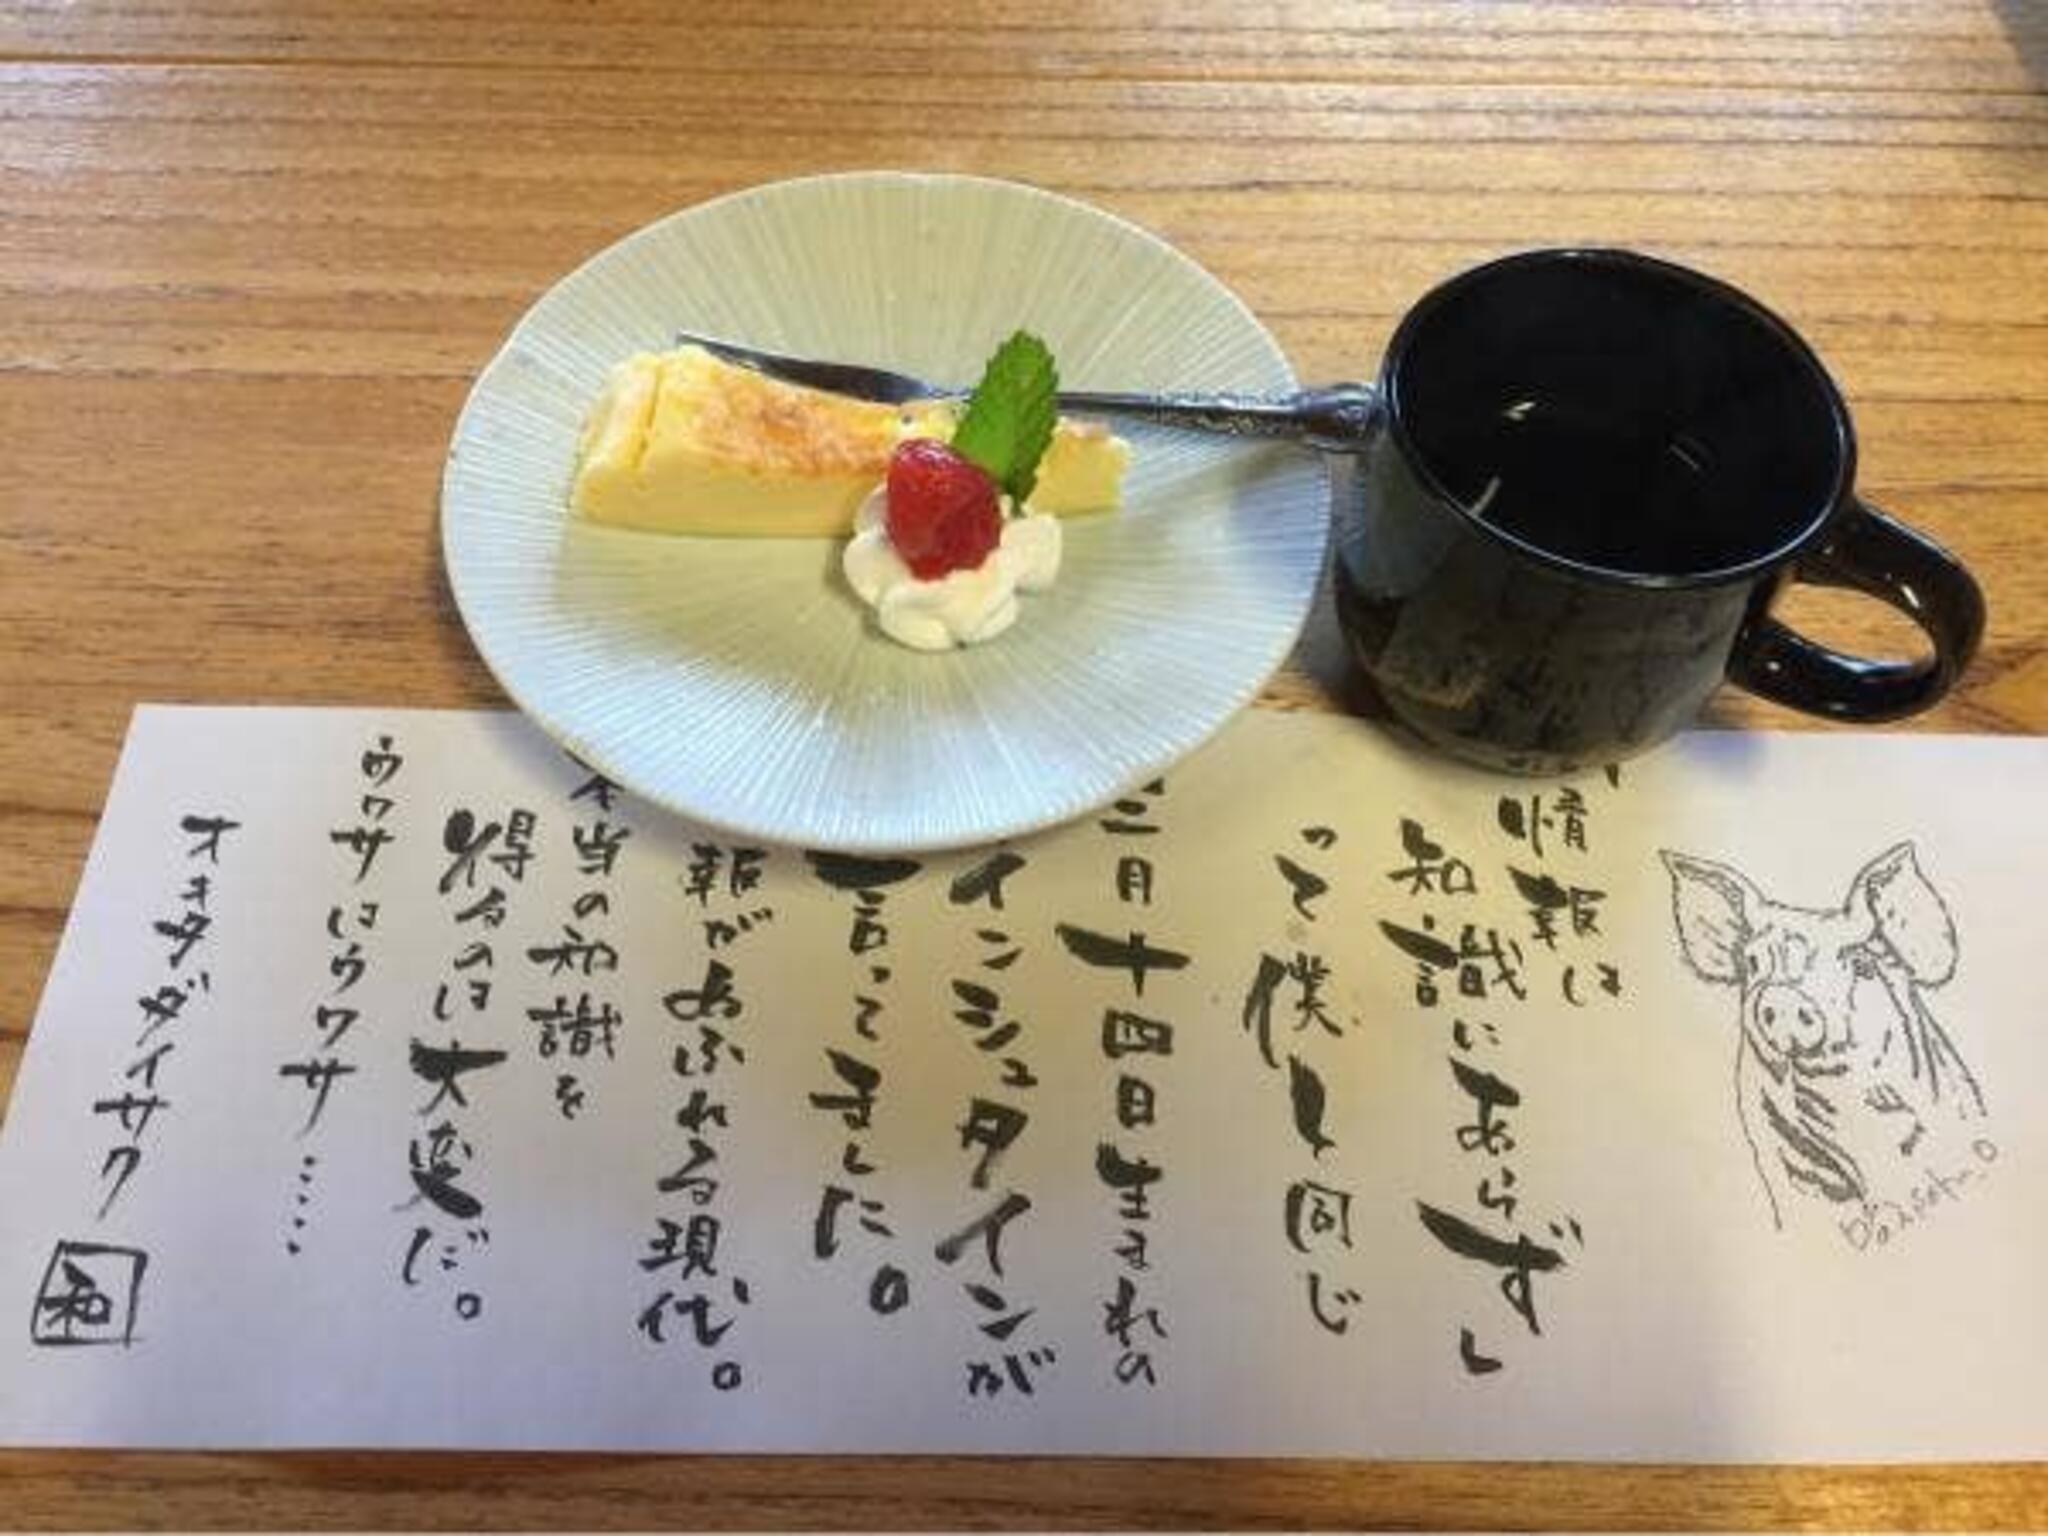 情報は
知識にあらず」
って僕と同じ
三月十四日生まれの
インシュタインが
言ってました。
報があふれる現代。
本当の知識を
得るのは大変だ。
ウワサはウワサ……
オキタダイサク
和